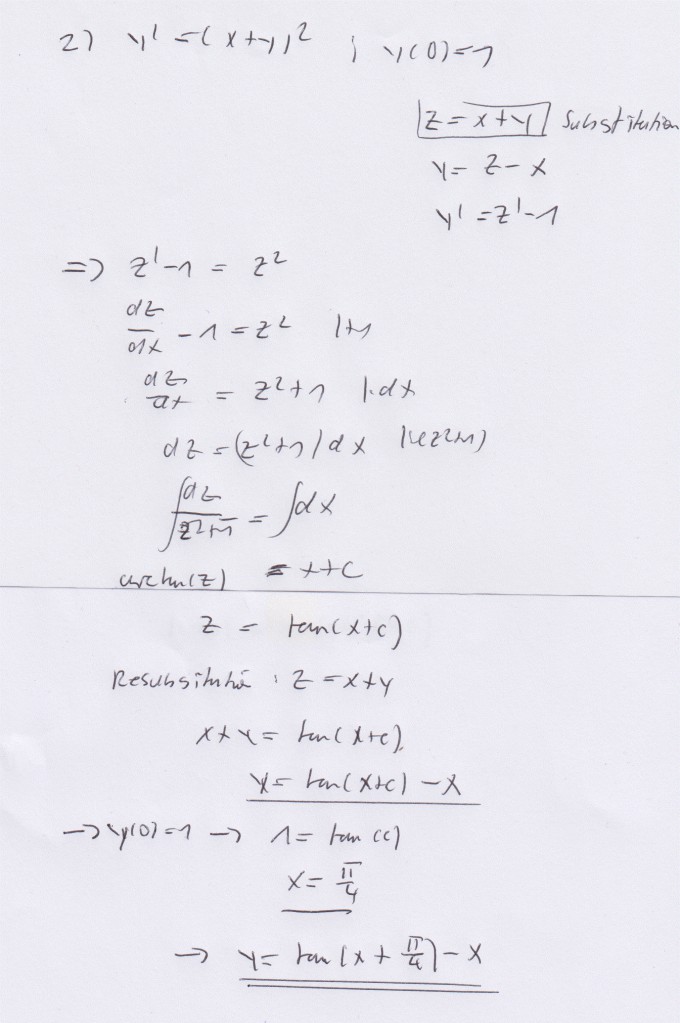 2) y' = (x+y)² ; y(0)=1
z = x+y Substitution
y = z - x
y' = z' - 1
=> z' - 1 = z²
dz/dx - 1 = z² |+1
dz/dx = z²+1 |·dx
dz = (z²+1) dx |:(z²+1)
∫ dz/(z²+1) = ∫ dx
arctan(z) = x+c
z = tan(x+c)
Resubstitution : z = x+y
x+y = tan(x+c)
y = tan(x+c) - x
-> y(0)=1 -> 1 = tan(c)
x = π/4
-> y = tan(x + π/4) - x